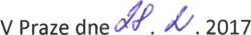 V Praze dne 28. 2. 2017